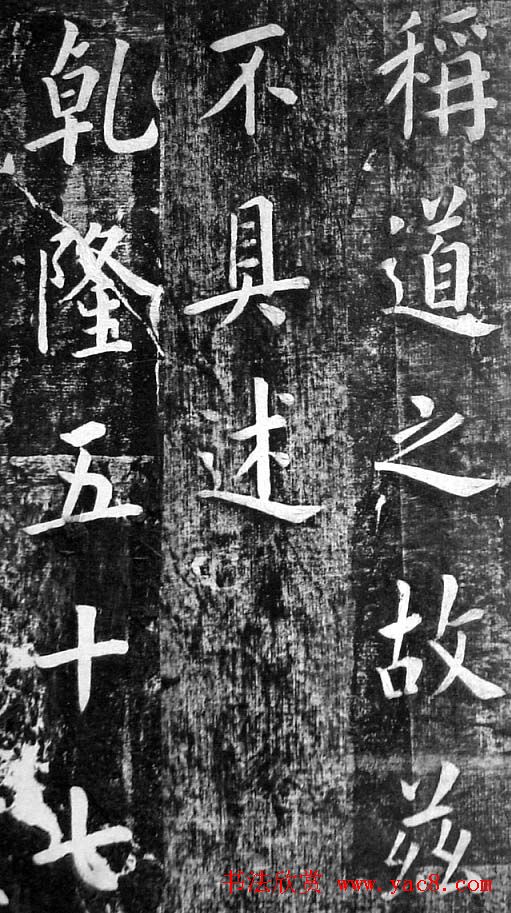 稱道之故兹
不具述
乾隆五十七
书法欣赏 www.yac8.com